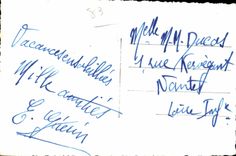 83
Vacances ensoleillées
Mille amitiés
Melle M.M. Ducos
1 rue
Nantes
Loire Infre